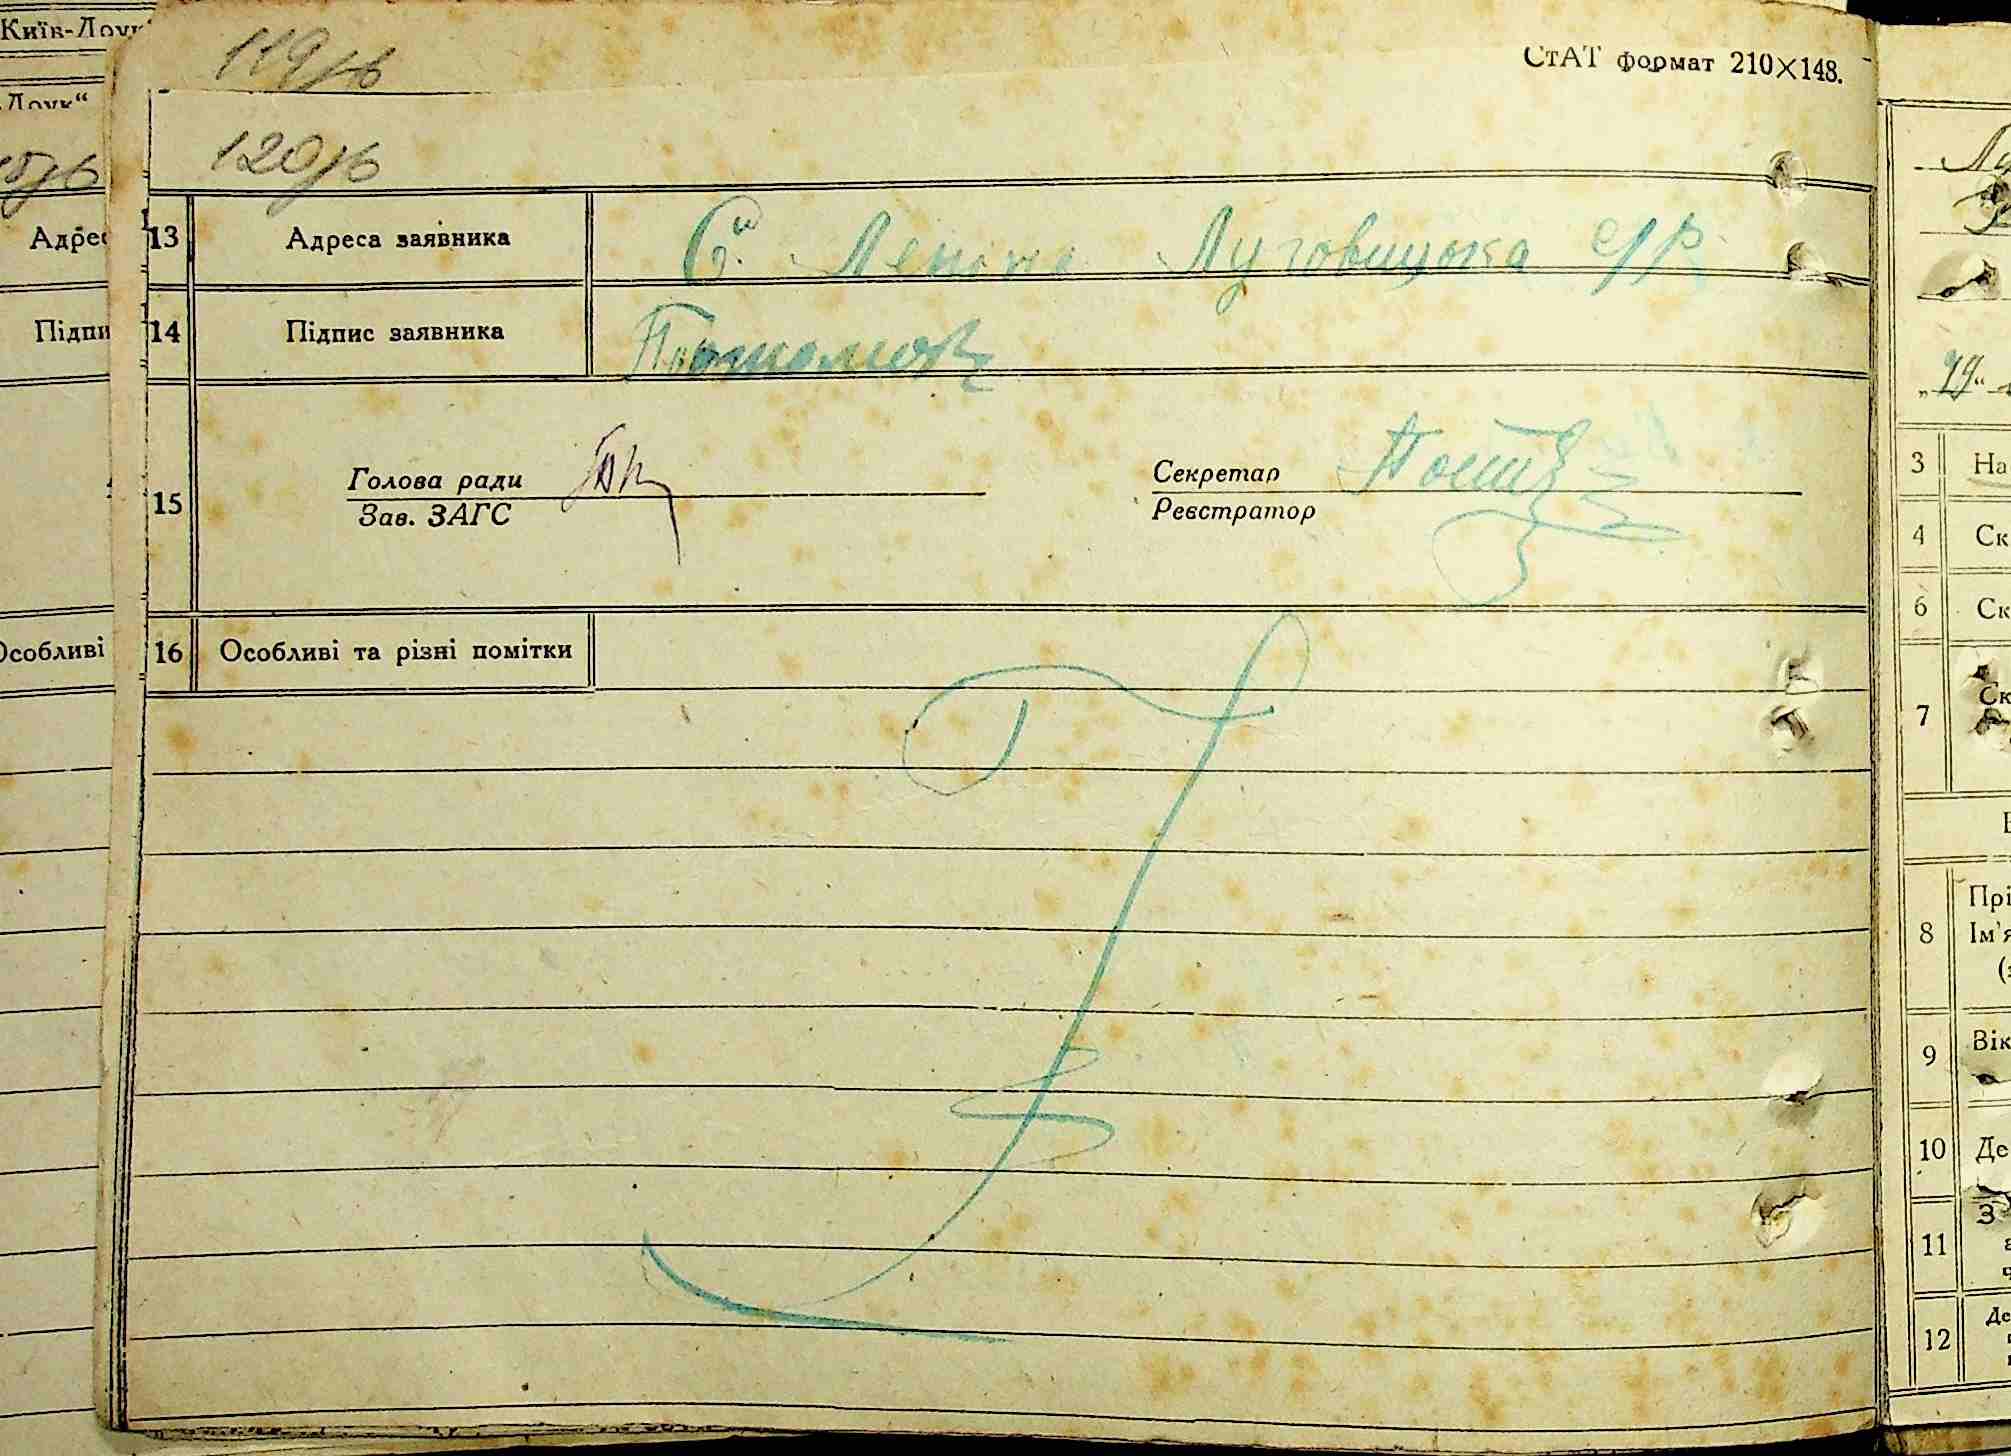 119зв
СтАТ формат 210×148.
120зв
13 Адреса заявника С. Леніно Луговицька с/р
14 Підпис заявника
15 Голова ради Секретар
Зав. ЗАГС Реєстратор
16 Особливі та різні помітки
Київ-Друк
-Друк“
Адрес
Підпи
Особливі
„29“
3 На
4 Ск
6 Ск
7 Ск
8 Прі
Ім’я
9 Вік
10 Де
11 З
12 Де